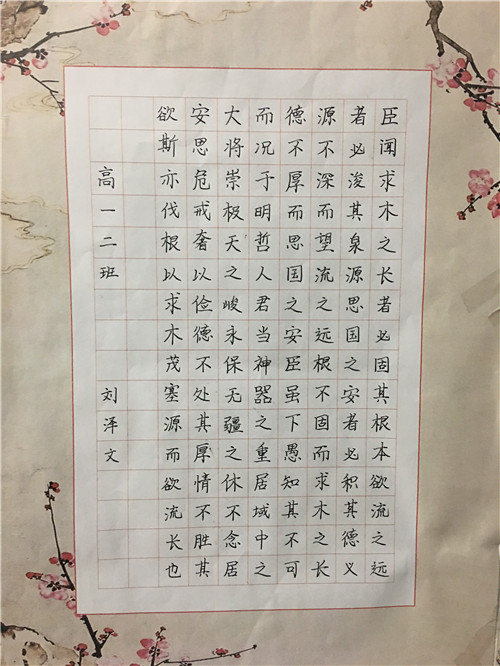 臣闻求木之长者必固其根本欲流之远
者必浚其泉源思国之安者必积其德义
源不深而望流之远根不固而求木之长
德不厚而思国之安臣虽下愚知其不可
而况于明哲人君当神器之重居域中之
大将崇极天之峻永保无疆之休不念居
安思危戒奢以俭德不处其厚情不胜其
欲斯亦伐根以求木茂塞源而欲流长也
高一二班 刘泽文